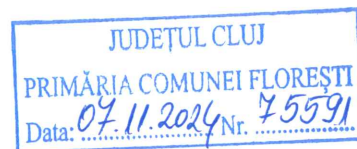 JUDEȚUL CLUJ
PRIMĂRIA COMUNEI FLOREȘTI
Data: 07.11.2024 Nr. 75591